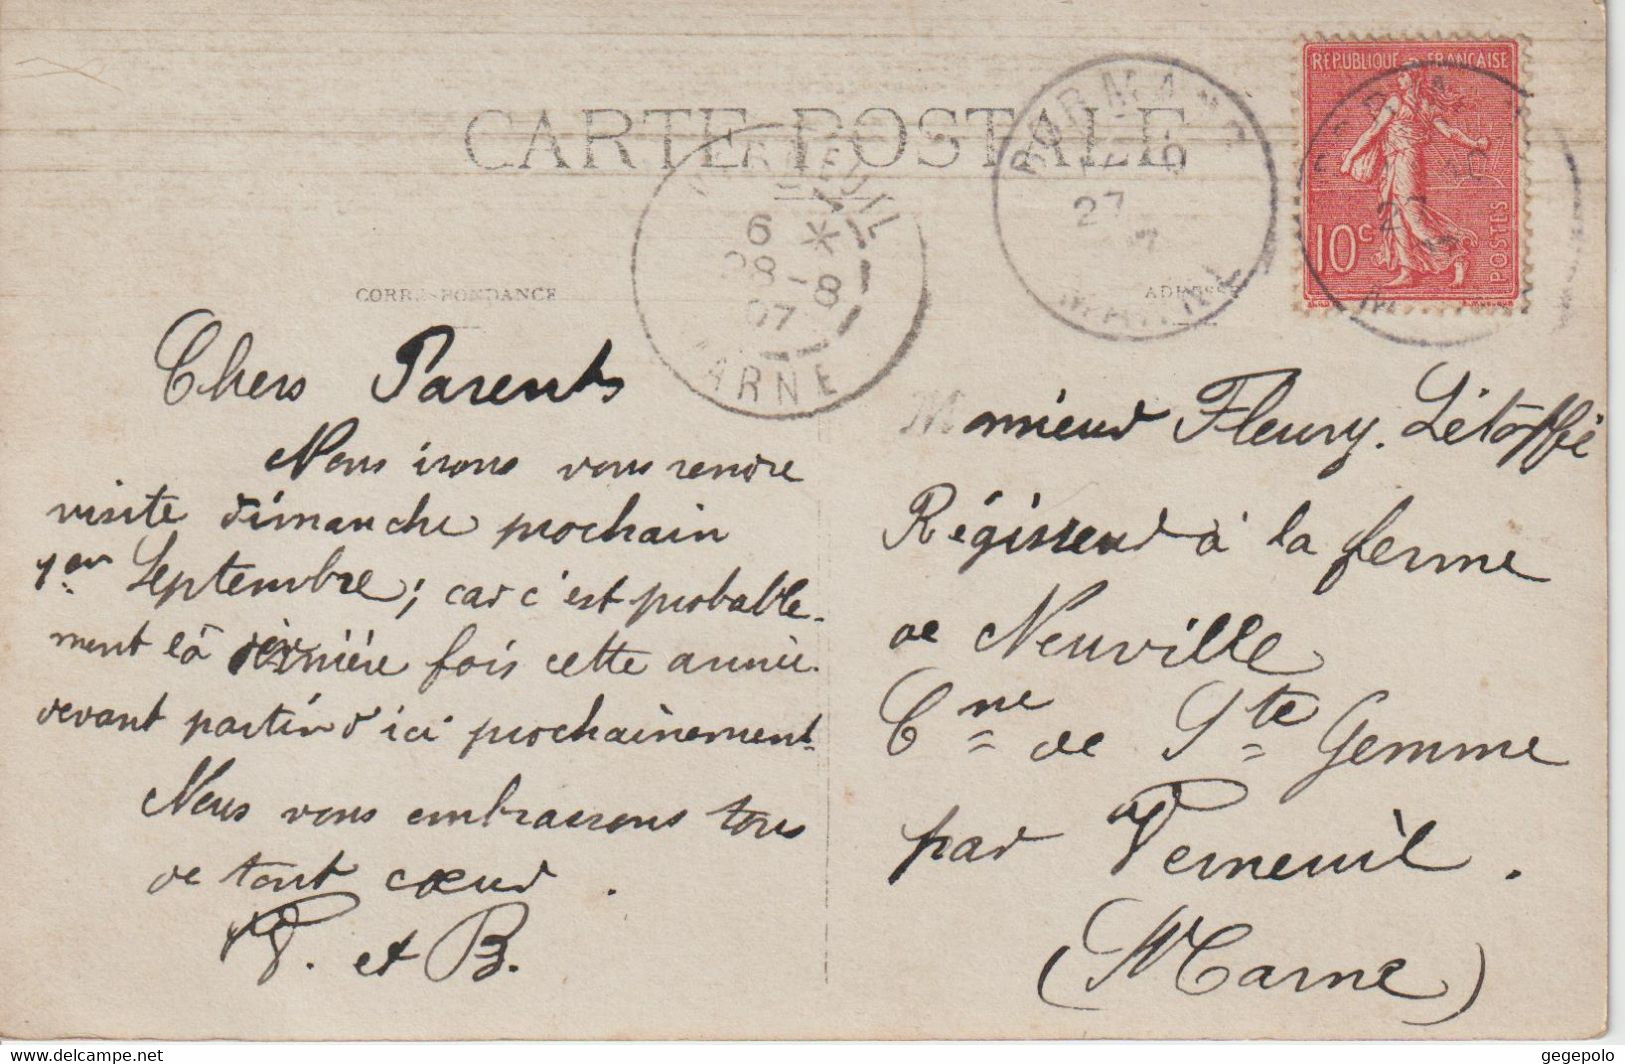 CARTE POSTALE
RÉPUBLIQUE FRANÇAISE
10c
POSTES
DORMANS
27
MARNE
VERNEUIL
6 *
28-8
07
MARNE
CORRESPONDANCE
ADRESSE
Chers Parents
Nous irons vous rendre
visite dimanche prochain
1er Septembre; car c'est probable-
ment la dernière fois cette année
devant partir d'ici prochainement.
Nous vous embrassons tous
de tout cœur.
V. et B.
Monsieur Fleury. Létoffé
Régisseur à la ferme
de Neuville
Cne de Ste Gemme
par Verneuil.
(Marne)
www.delcampe.net
gegepolo